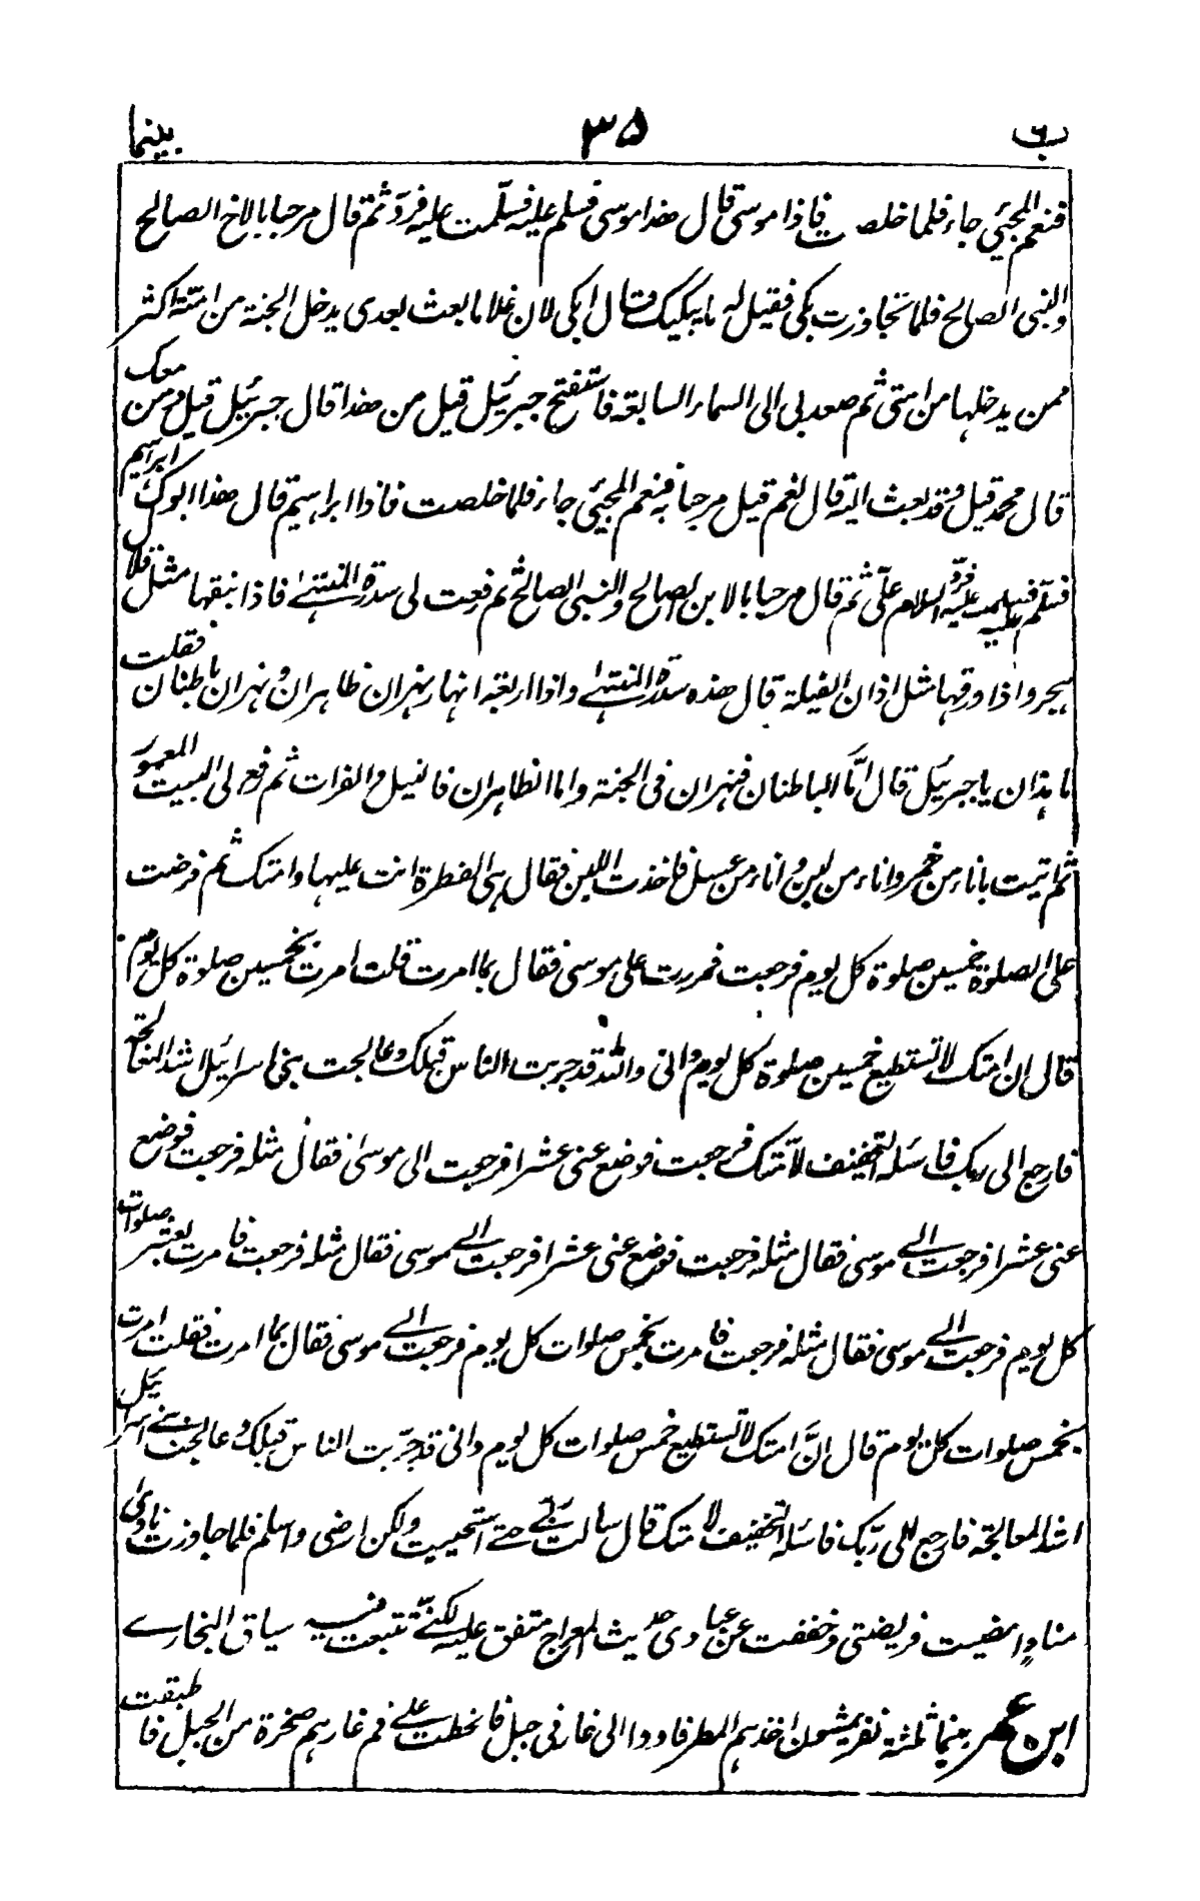 ب ٣٥ بينما
فنعم المجيئ جاء فلما خلصت فاذا موسى قال هذا موسى فسلم عليه فسلّمت عليه فردّ ثم قال مرحبا بالاخ الصالح
والنبى الصالح فلما تجاوزت بكى فقيل له ما يبكيك قال ابكى لان غلاما بعث بعدى يدخل الجنة من امته اكثر
ممن يدخلها من امتى ثم صعد بى الى السماء السابعة فاستفتح جبرئيل قيل من هذا قال جبرئيل قيل ومن معك
قال محمد قيل وقد بعث اليه قال نعم قيل مرحبا به فنعم المجيئ جاء فلما خلصت فاذا ابراهيم قال هذا ابوك ابراهيم
فسلّم عليه فسلمت عليه فردّ السلام علىّ ثم قال مرحبا بالابن الصالح والنبى الصالح ثم رفعت لى سدرة المنتهى فاذا نبقها مثل قلال
هجر واذا ورقها مثل اذان الفيلة قال هذه سدرة المنتهى واذا اربعة انهار نهران ظاهران ونهران باطنان فقلت
ما هذان يا جبرئيل قال امّا الباطنان فنهران فى الجنة واما الظاهران فالنيل والفرات ثم رفع لى البيت المعمور
ثم اتيت باناء من خمر واناء من لبن واناء من عسل فاخذت اللبن فقال هى الفطرة انت عليها وامتك ثم فرضت
على الصلوة خمسين صلوة كل يوم فرجعت فمررت على موسى فقال بما امرت قلت امرت بخمسين صلوة كل يوم
قال ان امتك لا تستطيع خمسين صلوة كل يوم وانى والله قد جربت الناس قبلك وعالجت بنى اسرائيل اشد المعالجة
فارجع الى ربك فاسئله التخفيف لامّتك فرجعت فوضع عنى عشرا فرجعت الى موسى فقال مثله فرجعت فوضع
عنى عشرا فرجعت الى موسى فقال مثله فرجعت فوضع عنى عشرا فرجعت الى موسى فقال مثله فرجعت فامرت بعشر صلوات
كل يوم فرجعت الى موسى فقال مثله فرجعت فامرت بخمس صلوات كل يوم فرجعت الى موسى فقال بما امرت فقلت امرت
بخمس صلوات كل يوم قال انّ امتك لا تستطيع خمس صلوات كل يوم وانى قد جرّبت الناس قبلك وعالجت بنى اسرائيل
اشد المعالجة فارجع الى ربّك فاسئله التخفيف لامتك قال سالت ربّى حتى استحييت ولكن ارضى واسلم فلما جاوزت نادى
منادٍ امضيت فريضتى وخففت عن عبادى حديث المعراج متفق عليه لكنّى تتبعت فيه سياق البخارى
ابن عمر بينما ثلثة نفر يمشون اخذهم المطر فاووا الى غار فى جبل فانحطت على فم غارهم صخرة من الجبل فاطبقت